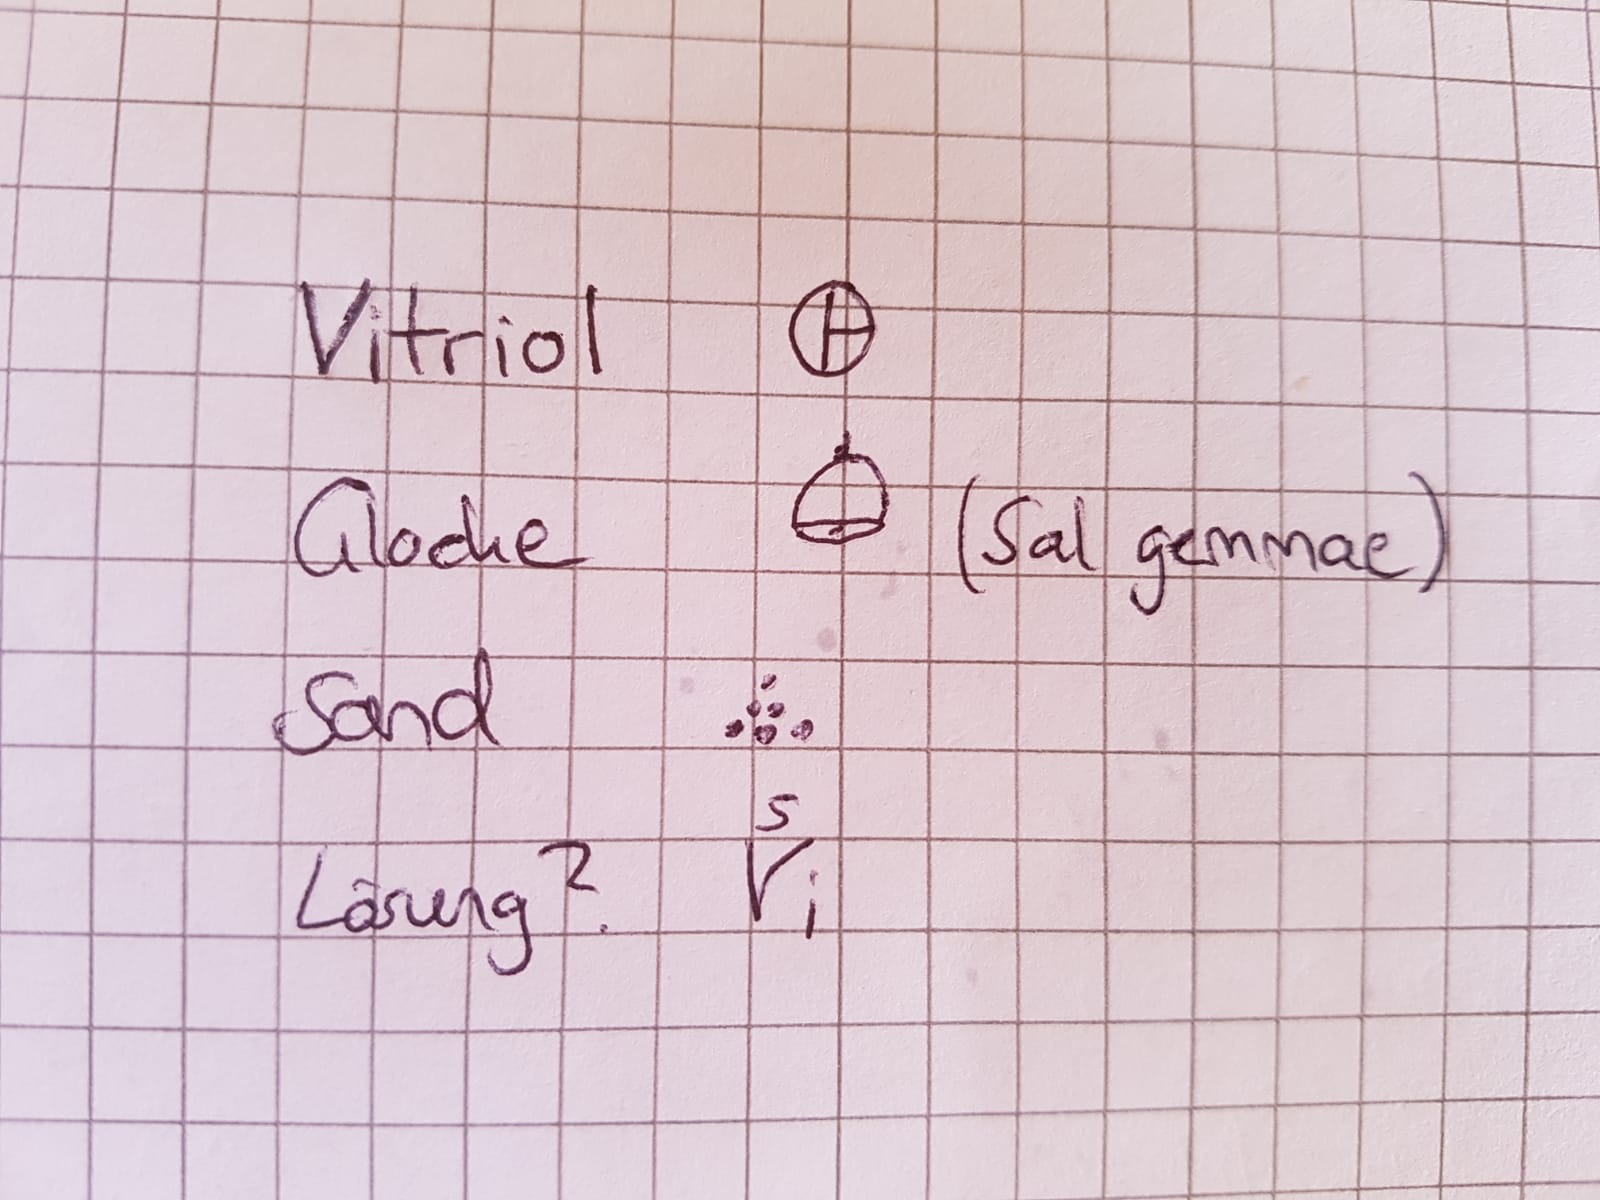 Vitriol
Glocke (Sal gemmae)
Sand
s
Lösung? Vi